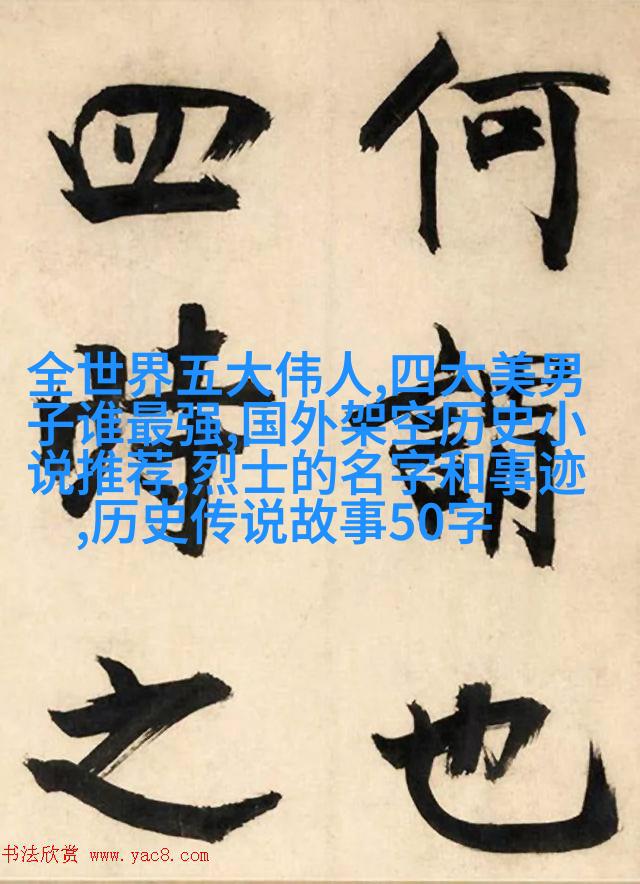 何謂也
四時之
全世界五大伟人,四大美男
子谁最强,国外架空历史小
说推荐,烈士的名字和事迹
,历史传说故事50字
书法欣赏 www.yac8.com